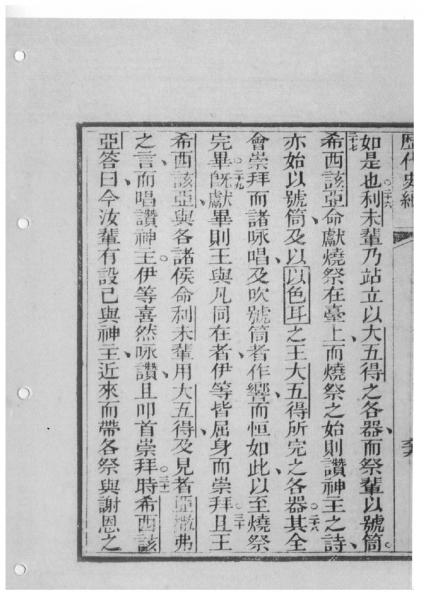 歷代史
如是也○二六利未輩乃站立以大五得之各器而祭輩以號筒○
二七希西該亞命獻燒祭在臺上、而燒祭之始則讚神王之詩、
亦始以號筒及以以色耳之王大五得所完之各器○二八其全
會崇拜、而諸咏唱及吹號筒者作響、而恒如此、以至燒祭
完畢○二九既獻畢、則王與凡同在者、伊等皆屈身而崇拜○三十且王
希西該亞與各諸侯命利未輩用大五得及見者亞撒弗
之言、而唱讚神王。伊等喜然咏讚、且叩首崇拜○三一時希西該
亞答曰、今汝輩有設己與神王、近來而帶各祭與謝恩之